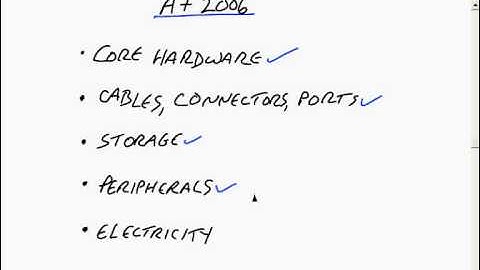 A+ 2006
• CORE HARDWARE ✓
• CABLES, CONNECTORS, PORTS ✓
• STORAGE ✓
• PERIPHERALS ✓
• ELECTRICITY